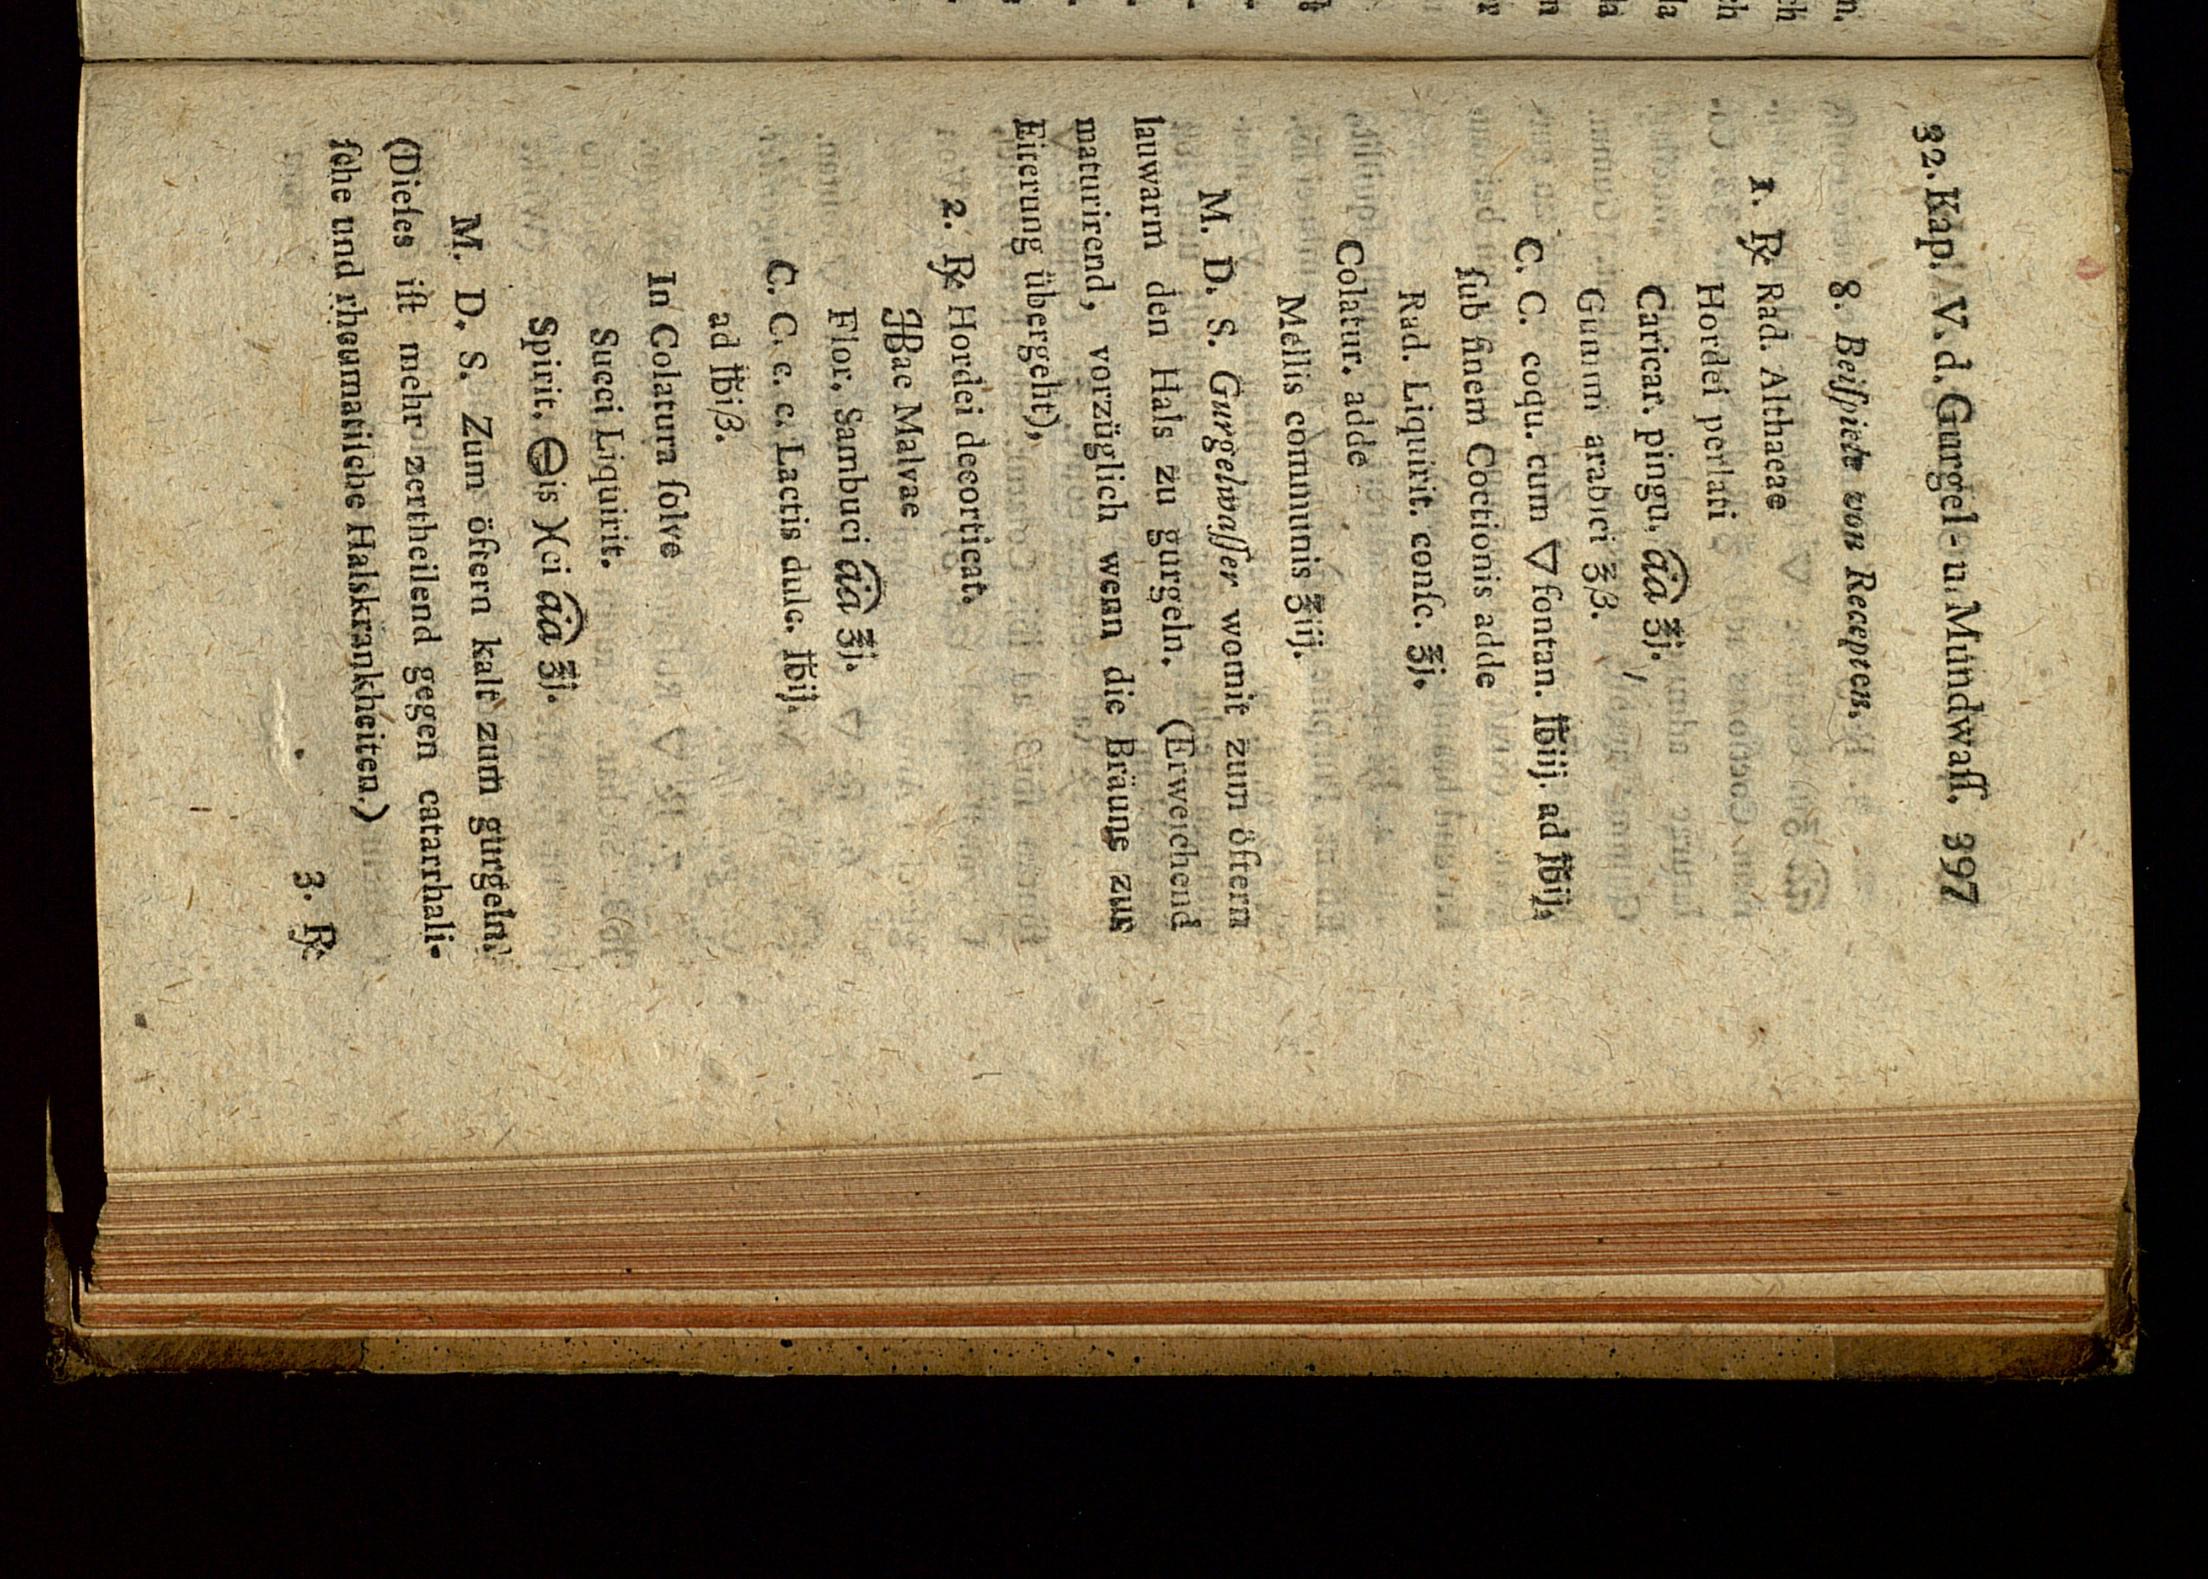 32. Kap. V. d. Gurgel- u. Mundwaſſ. 397
8. Beiſpiele von Recepten.
1. ℞ Rad. Althaeae
Hordei perlati
Caricar. pingu. āā ℥j.
Gummi arabici ℥β.
C. C. coqu. cum ▽ fontan. ℔iij. ad ℔ij.
ſub finem Coctionis adde
Rad. Liquirit. conſc. ℥j.
Colatur. adde
Mellis communis ℥iij.
M. D. S. Gurgelwaſſer womit zum öftern
lauwarm den Hals zu gurgeln. (Erweichend
maturirend, vorzüglich wenn die Bräune zur
Eiterung übergeht),
2. ℞ Hordei decorticat.
Bae Malvae
Flor. Sambuci āā ℥j.
C. C. c. c. Lactis dulc. ℔ij.
ad ℔iβ.
In Colatura ſolve
Succi Liquirit.
Spirit. 🜔is )(ci āā ℥j.
M. D. S. Zum öftern kalt zum gurgeln.
(Dieſes iſt mehr zertheilend gegen catarrhali-
ſche und rheumatiſche Halskrankheiten.)
3. ℞